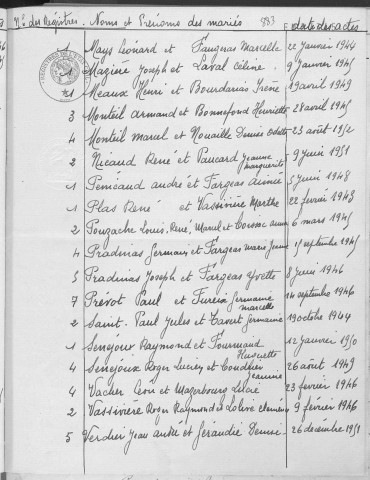 Nos des Registres. Noms et Prénoms des mariés 883 dates des actes
1 Mays Léonard et Faugeras Marcelle 22 Janvier 1944
Mazine Joseph et Laval Céline. 9 Janvier 1945
1 Meaux Henri et Bourdarias Irène 19 avril 1949
3 Monteil Armand et Bonnefond Henriette 28 avril 1945
4 Monteil Marcel et Nouaille Denise Odette 23 août 1952
2 Nicaud René et Paucard Jeanne 9 Juin 1951
Marguerite
1 Penicaud André et Fargeas Aimée 5 Juin 1948
1 Plas René et Vassivière Marthe 22 février 1943
2 Pouzache Louis, René, Marcel et 6 mars 1945
4 Pradinas Germain et Fargeas Marie Jeanne 1er septembre 1945
3 Pradinas Joseph et Fargeas Yvette 8 Juin 1946
7 Prévot Paul et Germaine 14 septembre 1946
Marcelle
2 Saint-Paul Jules et Germaine 19 octobre 1944
1 Senejoux Raymond et Fournaud 12 Janvier 1950
Huguette
4 Senejoux Roger Lucien et Coudrier 26 août 1949
Jeannine
4 Vacher Léon et Magerbourg Lucie 23 février 1946
2 Vassivière Roger Raymond et 9 février 1946
5 Verdier Jean André et Gérandie Denise. 26 décembre 1951